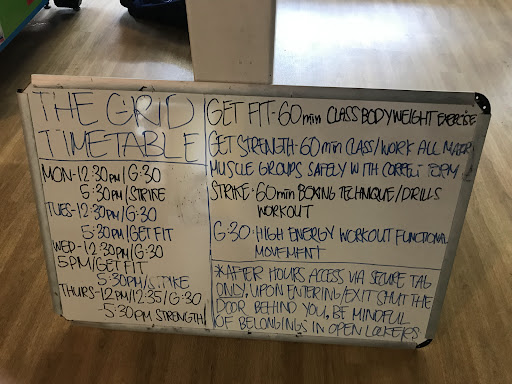 THE GRID
TIMETABLE
MON-12.30PM/G:30
5:30PM/STRIKE
TUES-12:30PM/G:30
5:30PM/GET FIT
WED-12:30PM/G:30
5PM/GET FIT
5:30PM/STRIKE
THURS-12PM/12:35/G:30
-5:30PM STRENGTH
GET FIT-60min CLASS BODYWEIGHT EXERCISE
GET STRENGTH-60min CLASS/WORK ALL MAJOR
MUSCLE GROUPS SAFELY WITH CORRECT FORM
STRIKE-60min BOXING TECHNIQUE/DRILLS
WORKOUT
G:30-HIGH ENERGY WORKOUT FUNCTIONAL
MOVEMENT
*AFTER HOURS ACCESS VIA SECURE TAG
ONLY, UPON ENTERING/EXIT SHUT THE
DOOR BEHIND YOU, BE MINDFUL
OF BELONGINGS IN OPEN LOCKERS